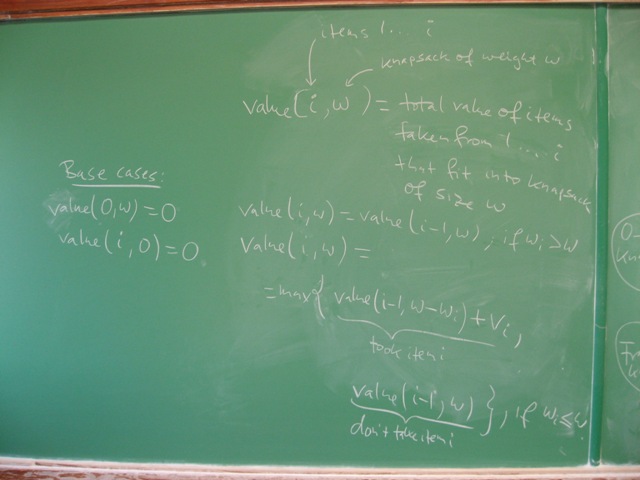 items 1... i
knapsack of weight w
value(i, w) = total value of items
taken from 1.... i
that fit into knapsack
of size w
Base cases:
value(0,w)=0
value(i,0)=0
value(i,w) = value(i-1,w), if wi>w
value(i,w) =
=max{ value(i-1, w-wi)+vi,
took item i
value(i-1,w) }, if wi≤w
don't take item i
0-